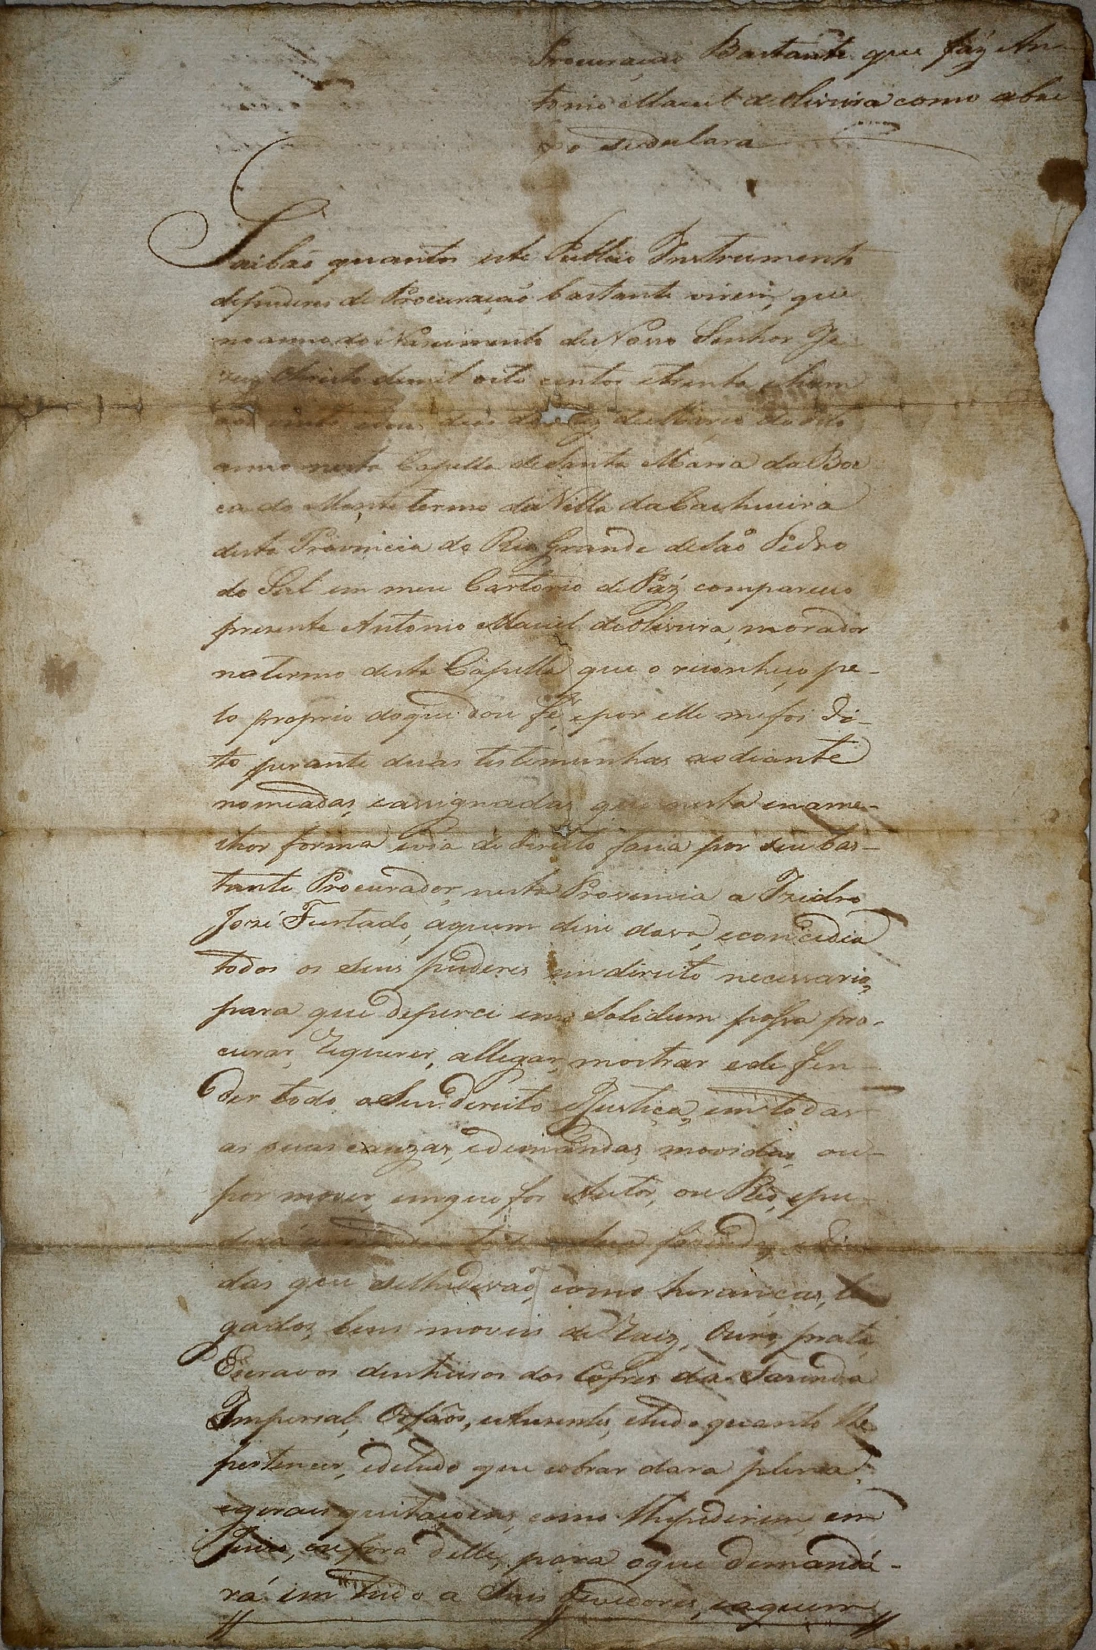 Procuração Bastante que fáz An-
tonio Maciel de Oliveira como abai-
xo sedeclara
Saibão quantos este Publico Instrumento
depuderes de Procuração bastante virem, que
no anno do Nascimento de Nosso Senhor Je-
zus Christo demil oito centos etrenta ehum
aos vinte dias do mez de Março do dito
anno nesta Capella de Santa Maria da Boc
ca do Monte termo da Villa da Cachueira
desta Provincia do Rio Grande de São Pedro
do Sul em meu Cartorio de Páz compareceo
prezente Antonio Maciel de Oliveira, morador
notermo desta Capella que o reconheço pe-
lo proprio doque dou fé, epor elle mefoi di-
to perante duas testemunhas aodiante
nomeadas, eassignadas, que nesta ename-
lhor forma evia de Direito fazia por seu bas-
tante Procurador, nesta Provincia a Izidro
José Furtado, aquem disse dava, econcedia
todos os seus puderes em direito necessarios,
para que depersi emo Solidum possa pro-
curar, Requerer, allegar, mostrar ede fen-
der todo oSeu Dereito eJustiça, em todas
as suas cauzas, edemandas, movidas, ou
por mover, emque for Autor, ou Réo, epu-
derá toda fazenda, e Divi
das que selhedevão, como heranças, le-
gados, bens moveis de Raiz, Ouro, prata
Escravos dinheiros dos Cofres da Fazenda
Imperial, Orfãos, eAusentes, etudo quanto lhe
pertencer, edetudo que cobrar dara plena
egerais quitaçoens, como lhepedirem, em
Juizo, oufora delle, para oque demanda-
rá em Tudo a Seus Devedores, eaquem